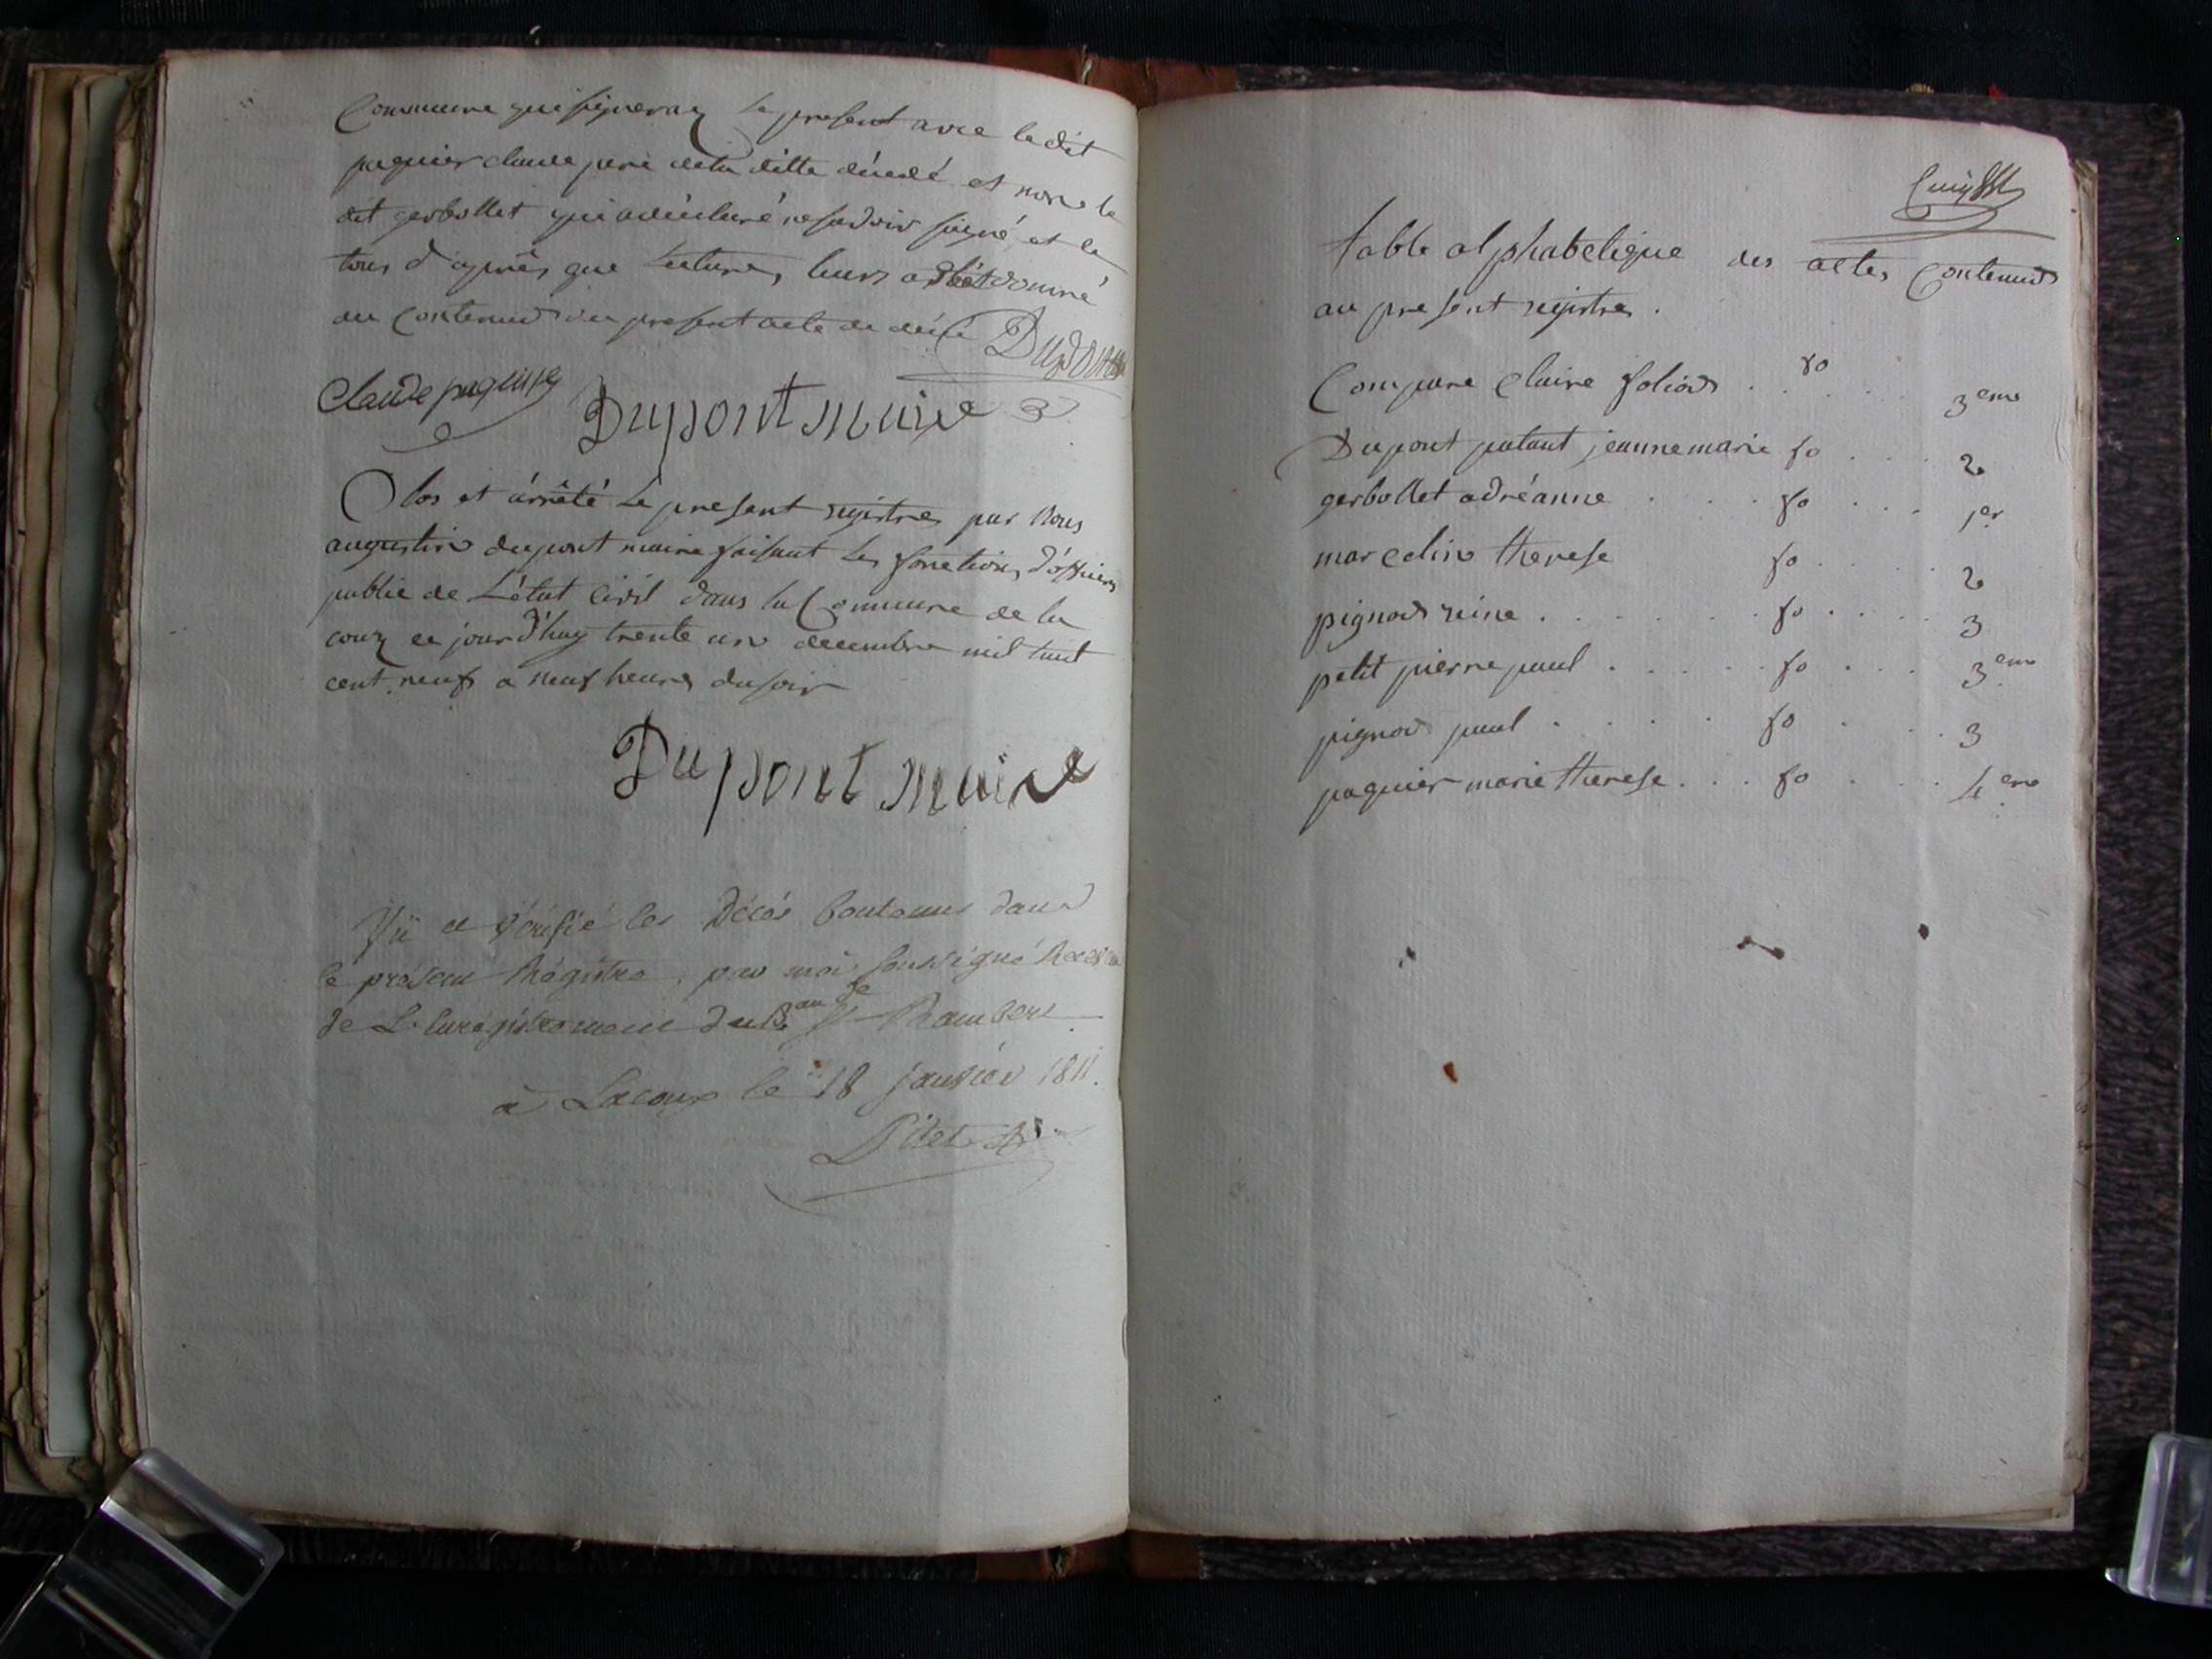 Commune qui signeront le present avec le dit
paquier claude pere de la ditte décedé et non le
dit gerbollet qui a déclaré ne savoir signé et le
tous d'après que lecture leurs a été donné
du contenus du present acte de décé Dupont
Claude paquier
Dupont maire
Clos et árrêté le present registre par Nous
augustin dupont maire faisant les fonctions d'officier
public de L'état Civil dans la Commune de la
coux ce jourd'huy trente un decembre mil huit
cent neuf a neuf heures du soir
Dupont maire
Vü et vérifié les Décés Contenus dans
le présent Régistre, par moi soussigné
de L'Enregistrement du Bau de St Rambert
à Lacoux le 18 janvier 1811.
table alphabetique des actes Contenus
au present registre .
Compare claire folios . fo . . . 3eme
Dupont putant jeanne marie fo . . . 2
gerbollet adréanne . . . fo . . . 1er
marcelin therese fo . . . 2
pignod reine . . . . . fo . . . 3
petit pierre paul . . . . fo . . . 3eme
pignod paul . . . . fo . . 3
paquier marie therese . . . fo . . . 4eme